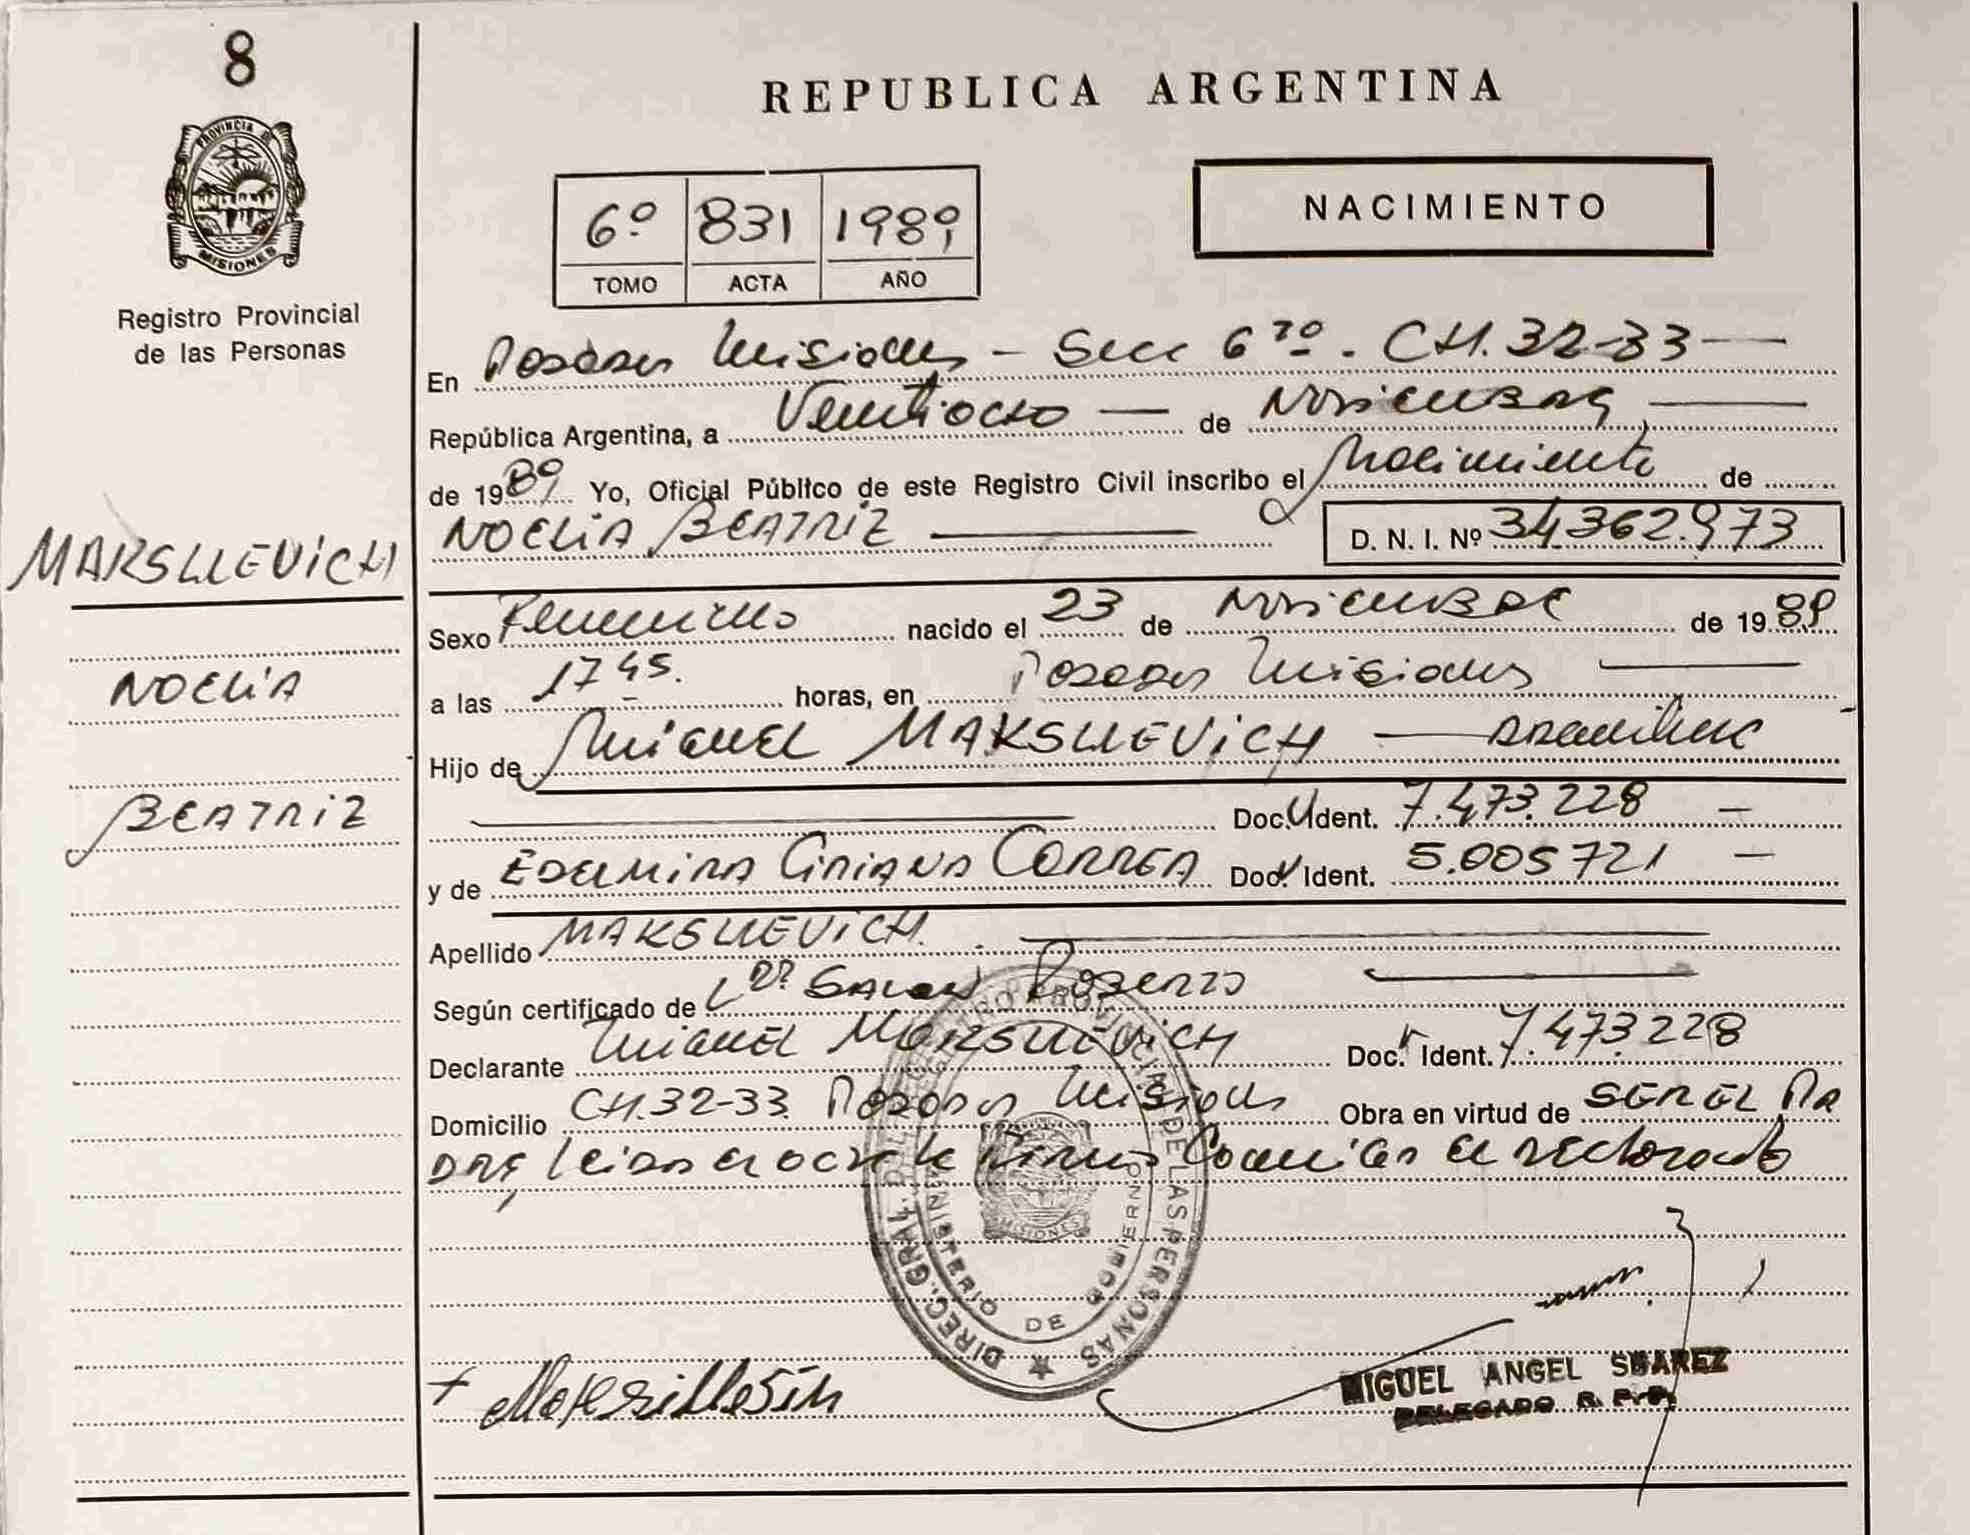 8
PROVINCIA DE
MISIONES
Registro Provincial
de las Personas
MAKSLLEVICH
NOELIA
BEATRIZ
REPUBLICA ARGENTINA
6º 831 1989
TOMO ACTA AÑO
NACIMIENTO
En Posadas Misiones - Secc 6 - CH. 32-33
República Argentina, a Veintiocho de Noviembre
de 1989 Yo, Oficial Público de este Registro Civil inscribo el Nacimiento de
NOELIA BEATRIZ D. N. I. Nº 34.362.973
Sexo Femenino nacido el 23 de Noviembre de 1989
a las 17 45. horas, en Posadas Misiones
Hijo de Miguel MAKSLLEVICH
Doc. Ident. 7.473.228
y de EDELMIRA CIRIANA CORREA Doc. Ident. 5.005721
Apellido MAKSLLEVICH.
Según certificado de
Declarante Miguel MAKSLLEVICH Doc. Ident. 7473228
Domicilio CH.32-33. Posadas Misiones Obra en virtud de SER EL PA
DRE, Leida el acta la firma el declarante
DIREC. GRAL. DEL REGISTRO PROVINCIAL DE LAS PERSONAS
MINISTERIO DE GOBIERNO
MISIONES
MIGUEL ANGEL SUAREZ
DELEGADO R. P. P.